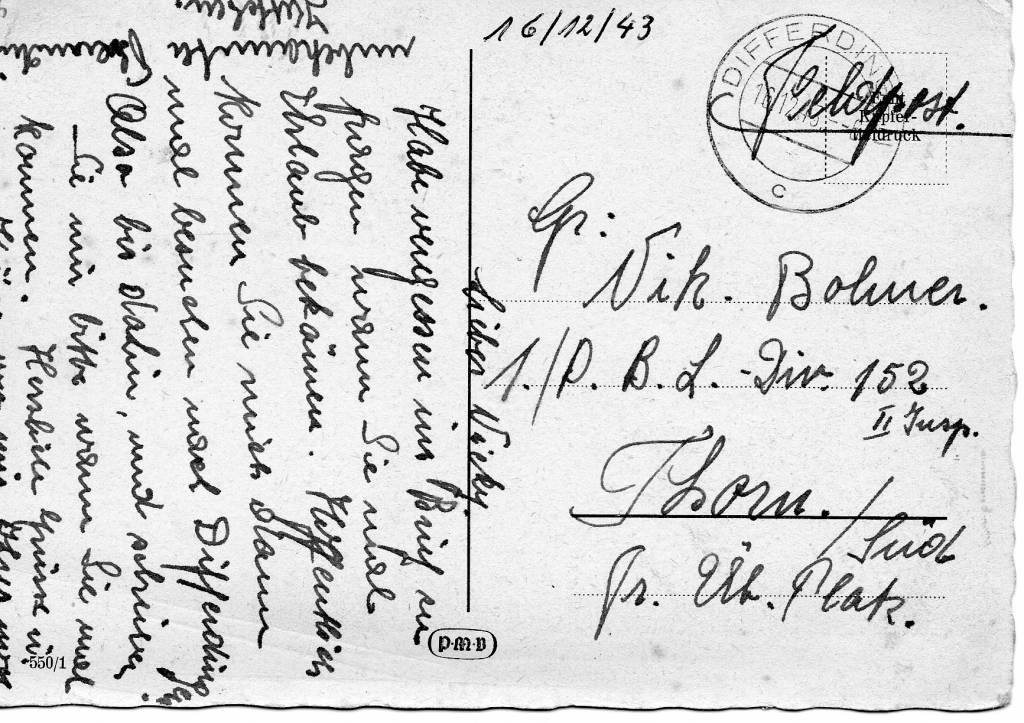 16/12/43
DIFFERDINGEN
C
Feldpost.
Kupfer-
tiefdruck
Gr:
Nik. Bohner.
1./P. B. L. - Div. 152
II Insp.
Thorn. / Süd
Gr. Üb. Platz.
Lieber Nicky.
Habe vergessen im Brief zu
fragen wann Sie mal
Urlaub bekämen. Hoffentlich
kommen Sie mich dann
mal besuchen nach Differdingen
Also bis dahin, und schreiben
Sie mir bitte wann Sie mal
kommen. Herzliche Grüsse
unbekannte
P.M.B
550/1